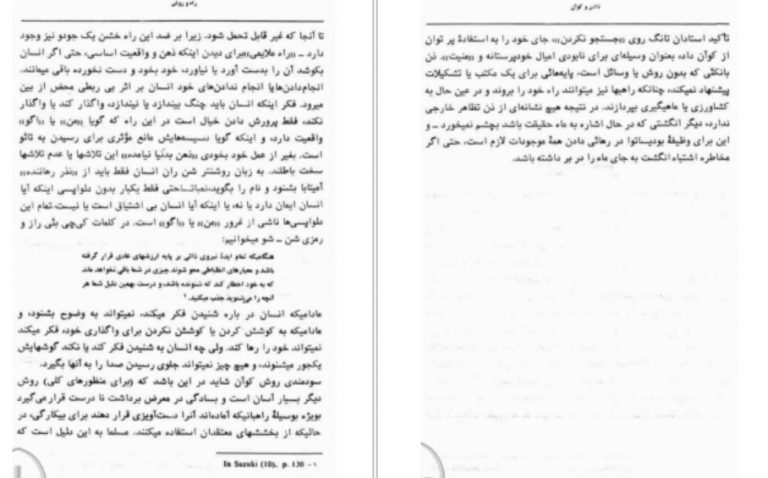 راه و روش
تا آنجا که غیر قابل تحمل شود. زیرا بر ضد این راه خشن یک جودو نیز وجود
دارد ــ «راه ملایمی» برای دیدن اینکه ذهن و واقعیت اساسی، حتی اگر انسان
بکوشد آن را بدست آورد یا نیاورد، خود بخود و دست نخورده باقی میمانند.
انجام‌دادن‌ها یا انجام ندادن‌های خود انسان بر اثر بی ربطی محض از بین
میرود. فکر اینکه انسان باید چنگ بیندازد یا نیندازد، واگذار کند یا واگذار
نکند، فقط پرورش دادن خیال است در این راه که گویا «من» یا «اگو»
واقعیت دارد، و اینکه گویا دسیسه‌هایش مانع مؤثری برای رسیدن به تائو
است. بغیر از عمل خود بخودی «ذهن بدنیا نیامده» این تلاشها یا عدم تلاشها
سخت باطلند. به زبان روشنتر شن ران انسان فقط باید از «نذر رهاننده»
آمیتابا بشنود و نام را بگوید، حتی فقط یکبار بدون دلواپسی اینکه آیا
انسان ایمان دارد یا نه، یا اینکه آیا انسان بی اشتیاق است یا نیست. تمام این
دلواپسی‌ها ناشی از غرور «من» یا «اگو» است. در کلمات کی‌چی بئی راز و
رمزی شن ــ شو میخوانیم:
هنگامیکه تمام ایدهٔ نیروی ذاتی بر پایه ارزشهای عادی قرار گرفته
باشد و معیارهای انظباطی محو شوند چیزی در شما باقی نخواهد ماند
که به خود اخطار کند که شنونده باشد، و درست بهمین دلیل شما هر
آنچه را می‌شنوید جذب میکنید.۱
مادامیکه انسان در باره شنیدن فکر میکند، نمیتواند به وضوح بشنود، و
مادامیکه به کوشش کردن یا کوشش نکردن برای واگذاری خود، فکر میکند
نمیتواند خود را رها کند. ولی چه انسان به شنیدن فکر کند یا نکند گوشهایش
یکجور میشنوند، و هیچ چیز نمیتواند جلوی رسیدن صدا را به آنها بگیرد.
سودمندی روش کوآن شاید در این باشد که (برای منظورهای کلی) روش
دیگر بسیار آسان است و بسادگی در معرض برداشت نا درست قرار می‌گیرد
بویژه بوسیلهٔ راهبانیکه آماده‌اند آنرا دست‌آویزی قرار دهند برای بیکارگی، در
حالیکه از بخششهای معتقدان استفاده میکنند. مسلما به این دلیل است که
۱ – In Suzuki (10), p. 130
تأکید استادان تانگ روی «جستجو نکردن» جای خود را به استفادهٔ پر توان
از کوآن داد، بعنوان وسیله‌ای برای نابودی امیال خودپرستانه و «منیت». ذن
بانکئی که بدون روش یا وسائل است، پایه‌هائی برای یک مکتب یا تشکیلات
پیشنهاد نمیکند، چنانکه راهبها نیز میتوانند راه خود را بروند و در عین حال به
کشاورزی یا ماهیگیری بپردازند. در نتیجه هیچ نشانه‌ای از ذن تظاهر خارجی
ندارد، دیگر انگشتی که در حال اشاره به ماه حقیقت باشد بچشم نمیخورد ــ و
این برای وظیفهٔ بودیساتوا در رهائی دادن همهٔ موجودات لازم است، حتی اگر
مخاطره اشتباه انگشت به جای ماه را در بر داشته باشد.